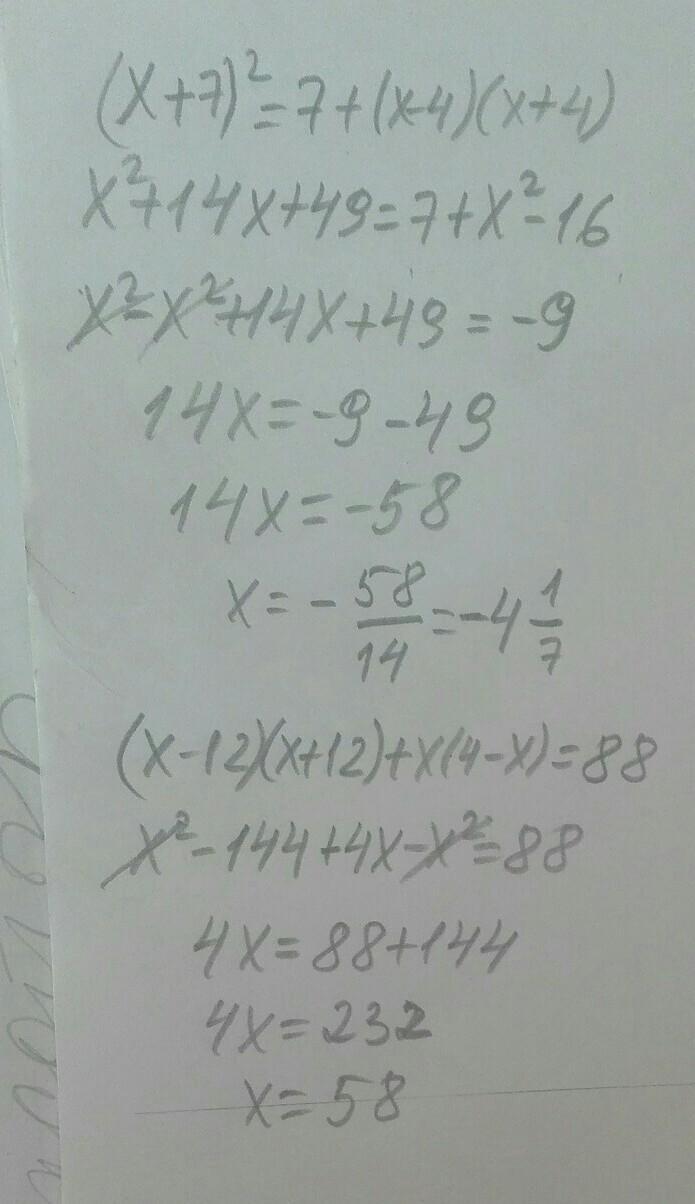 (x+7)²=7+(x-4)(x+4)
x²+14x+49=7+x²-16
x²-x²+14x+49=-9
14x=-9-49
14x=-58
x=-58/14=-4 1/7
(x-12)(x+12)+x(4-x)=88
x²-144+4x-x²=88
4x=88+144
4x=232
x=58